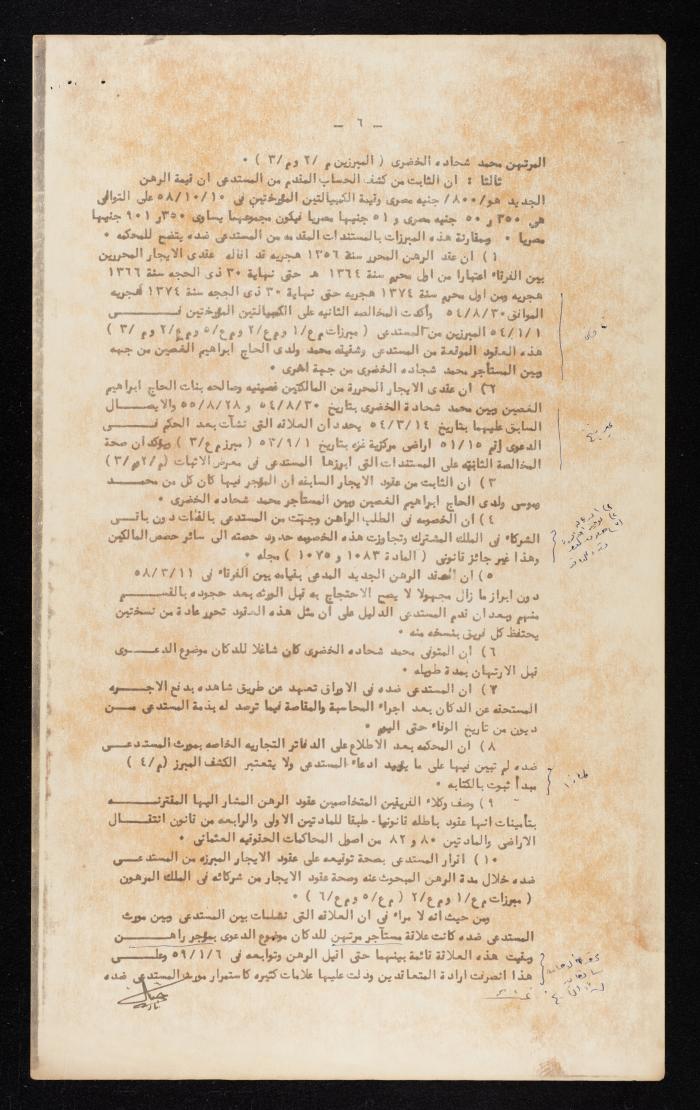 — ٦ —
المرتهن محمد شحاده الخضرى ( المبرزين م /٢ و م /٣ ) ٠
ثالثا : ان الثابت من كشف الحساب المقدم من المستدعى ان قيمة الرهن
الجديد هو/٨٠٠/ جنيه مصرى وقيمة الكمبيالتين المؤرختين فى ٥٨/١٠/١٥ على التوالى
هى ٣٥٠ر ٥٠ جنيه مصرى و ٥١ جنيها مصريا فيكون مجموعهما يساوى ٣٥٠ر ٩٠١ جنيها
مصريا ٠ وبمقارنة هذه المبرزات بالمستندات المقدمه من المستدعى ضده يتضح للمحكمه ٠
١ ) ان عقد الرهن المحرر سنة ١٣٥٦ هجريه قد اقاله عقدى الايجار المحررين
بين الفرقاء اعتبارا من اول محرم سنة ١٣٦٤ هـ حتى نهاية ٣٠ ذى الحجه سنة ١٣٦٦
هجريه ومن اول محرم سنة ١٣٧٤ هجريه حتى نهاية ٣٠ ذى الحجه سنة ١٣٧٤ هجريه
الموافق ٥٤/٨/٣٠ وأكدت المخالصه الثانيه على الكمبيالتين المؤرختين فى
٥٤/١/١ المبرزين من المستدعى ( مبرزات م ع/١ و م ع/٢ و م ع/٥ و م ع/٢ و م /٣ )
هذه العقود الموقعة من المستدعى وشقيقه محمد ولدى الحاج ابراهيم الغصين من جهه
وبين المستأجر محمد شحاده الخضرى من جهة اخرى ٠
٢ ) ان عقدى الايجار المحررة من المالكتين فصينيه وصالحه بنات الحاج ابراهيم
الغصين وبين محمد شحادة الخضرى بتاريخ ٥٤/٨/٣٠ و ٥٥/٨/٢٨ والايصال
السابق عليهما بتاريخ ٥٤/٣/١٤ يحدد ان العلاقه التى نشأت بعد الحكم فى
الدعوى رقم ٥١/١٥ اراضى مركزية غزه بتاريخ ٥٣/٩/١ ( مبرز م ع/٣ ) ويؤكدان صحة
المخالصة الثابته على المستندات التى ابرزها المستدعى فى معرض الاثبات ( م/٢ و م/٣ )
٣ ) ان الثابت من عقود الايجار السابقه ان المؤجر فيها كان كل من محمد
وموسى ولدى الحاج ابراهيم الغصين وبين المستأجر محمد شحاده الخضرى ٠
٤ ) ان الخصومه فى الطلب الراهن وجهت من المستدعى بالذات دون باقى
الشركاء فى الملك المشترك وتجاوزت هذه الخصومه حدود حصته الى سائر حصص المالكين
وهذا غير جائز قانونى ( المادة ١٠٨٣ و ١٠٧٥ ) مجله ٠
٥ ) ان عقد الرهن الجديد المدعى بقيامه بين الفرقاء فى ٥٨/٣/١١
دون ابراز ما زال مجهولا لا يصح الاحتجاج به قبل الورثه بعد جحوده بالقسم
منهم وبعد ان قدم المستدعى الدليل على أن مثل هذه العقود تحرر عادة من نسختين
يحتفظ كل فريق بنسخه منه ٠
٦ ) ان المتوفى محمد شحاده الخضرى كان شاغلا للدكان موضوع الدعوى
قبل الارتهان بمدة طويله ٠
٧ ) ان المستدعى ضده فى الاوراق تعهد عن طريق شاهده بدفع الاجره
المستحقه عن الدكان بعد اجراء المحاسبة والمقاصة فيما ترصد له بذمة المستدعى من
ديون من تاريخ الوفاء حتى اليوم ٠
٨ ) ان المحكمه بعد الاطلاع على الدفاتر التجاريه الخاصه بمورث المستدعى
ضده لم تبين فيها على ما يؤيد ادعاء المستدعى ولا يتعتبر الكشف المبرز ( م/٤ )
مبدأ ثبوت بالكتابه ٠
٩ ) وصف وكلاء الفريقين المتخاصمين عقود الرهن المشار اليها المقترنه
بتأمينات انها عقود باطله قانونيا - طبقا للمادتين الاولى والرابعه من قانون انتقال
الاراضى والمادتين ٨٠ و ٨٢ من اصول المحاكمات الحقوقيه العثمانى ٠
١٠ ) اقرار المستدعى بصحة توقيعه على عقود الايجار المبرزه من المستدعى
ضده خلال مدة الرهن المبحوث عنه وصحة عقود الايجار من شركائه فى الملك المرهون
( مبرزات م ع/١ و م ع/٢ ( م ع/٥ و م ع/٦ ) ٠
ومن حيث انه لا مراء فى ان العلاقه التى نشأت بين المستدعى وبين مورث
المستدعى ضده كانت علاقة مستأجر مرتهن للدكان موضوع الدعوى بمؤجر راهن
وبقيت هذه العلاقة قائمة بينهما حتى اقيل الرهن وتوابعه فى ٥٩/١/٦ وعلى
هذا انصرفت ارادة المتعاقدين ودلت عليها علامات كثيره كاستمرار مورث المستدعى ضده